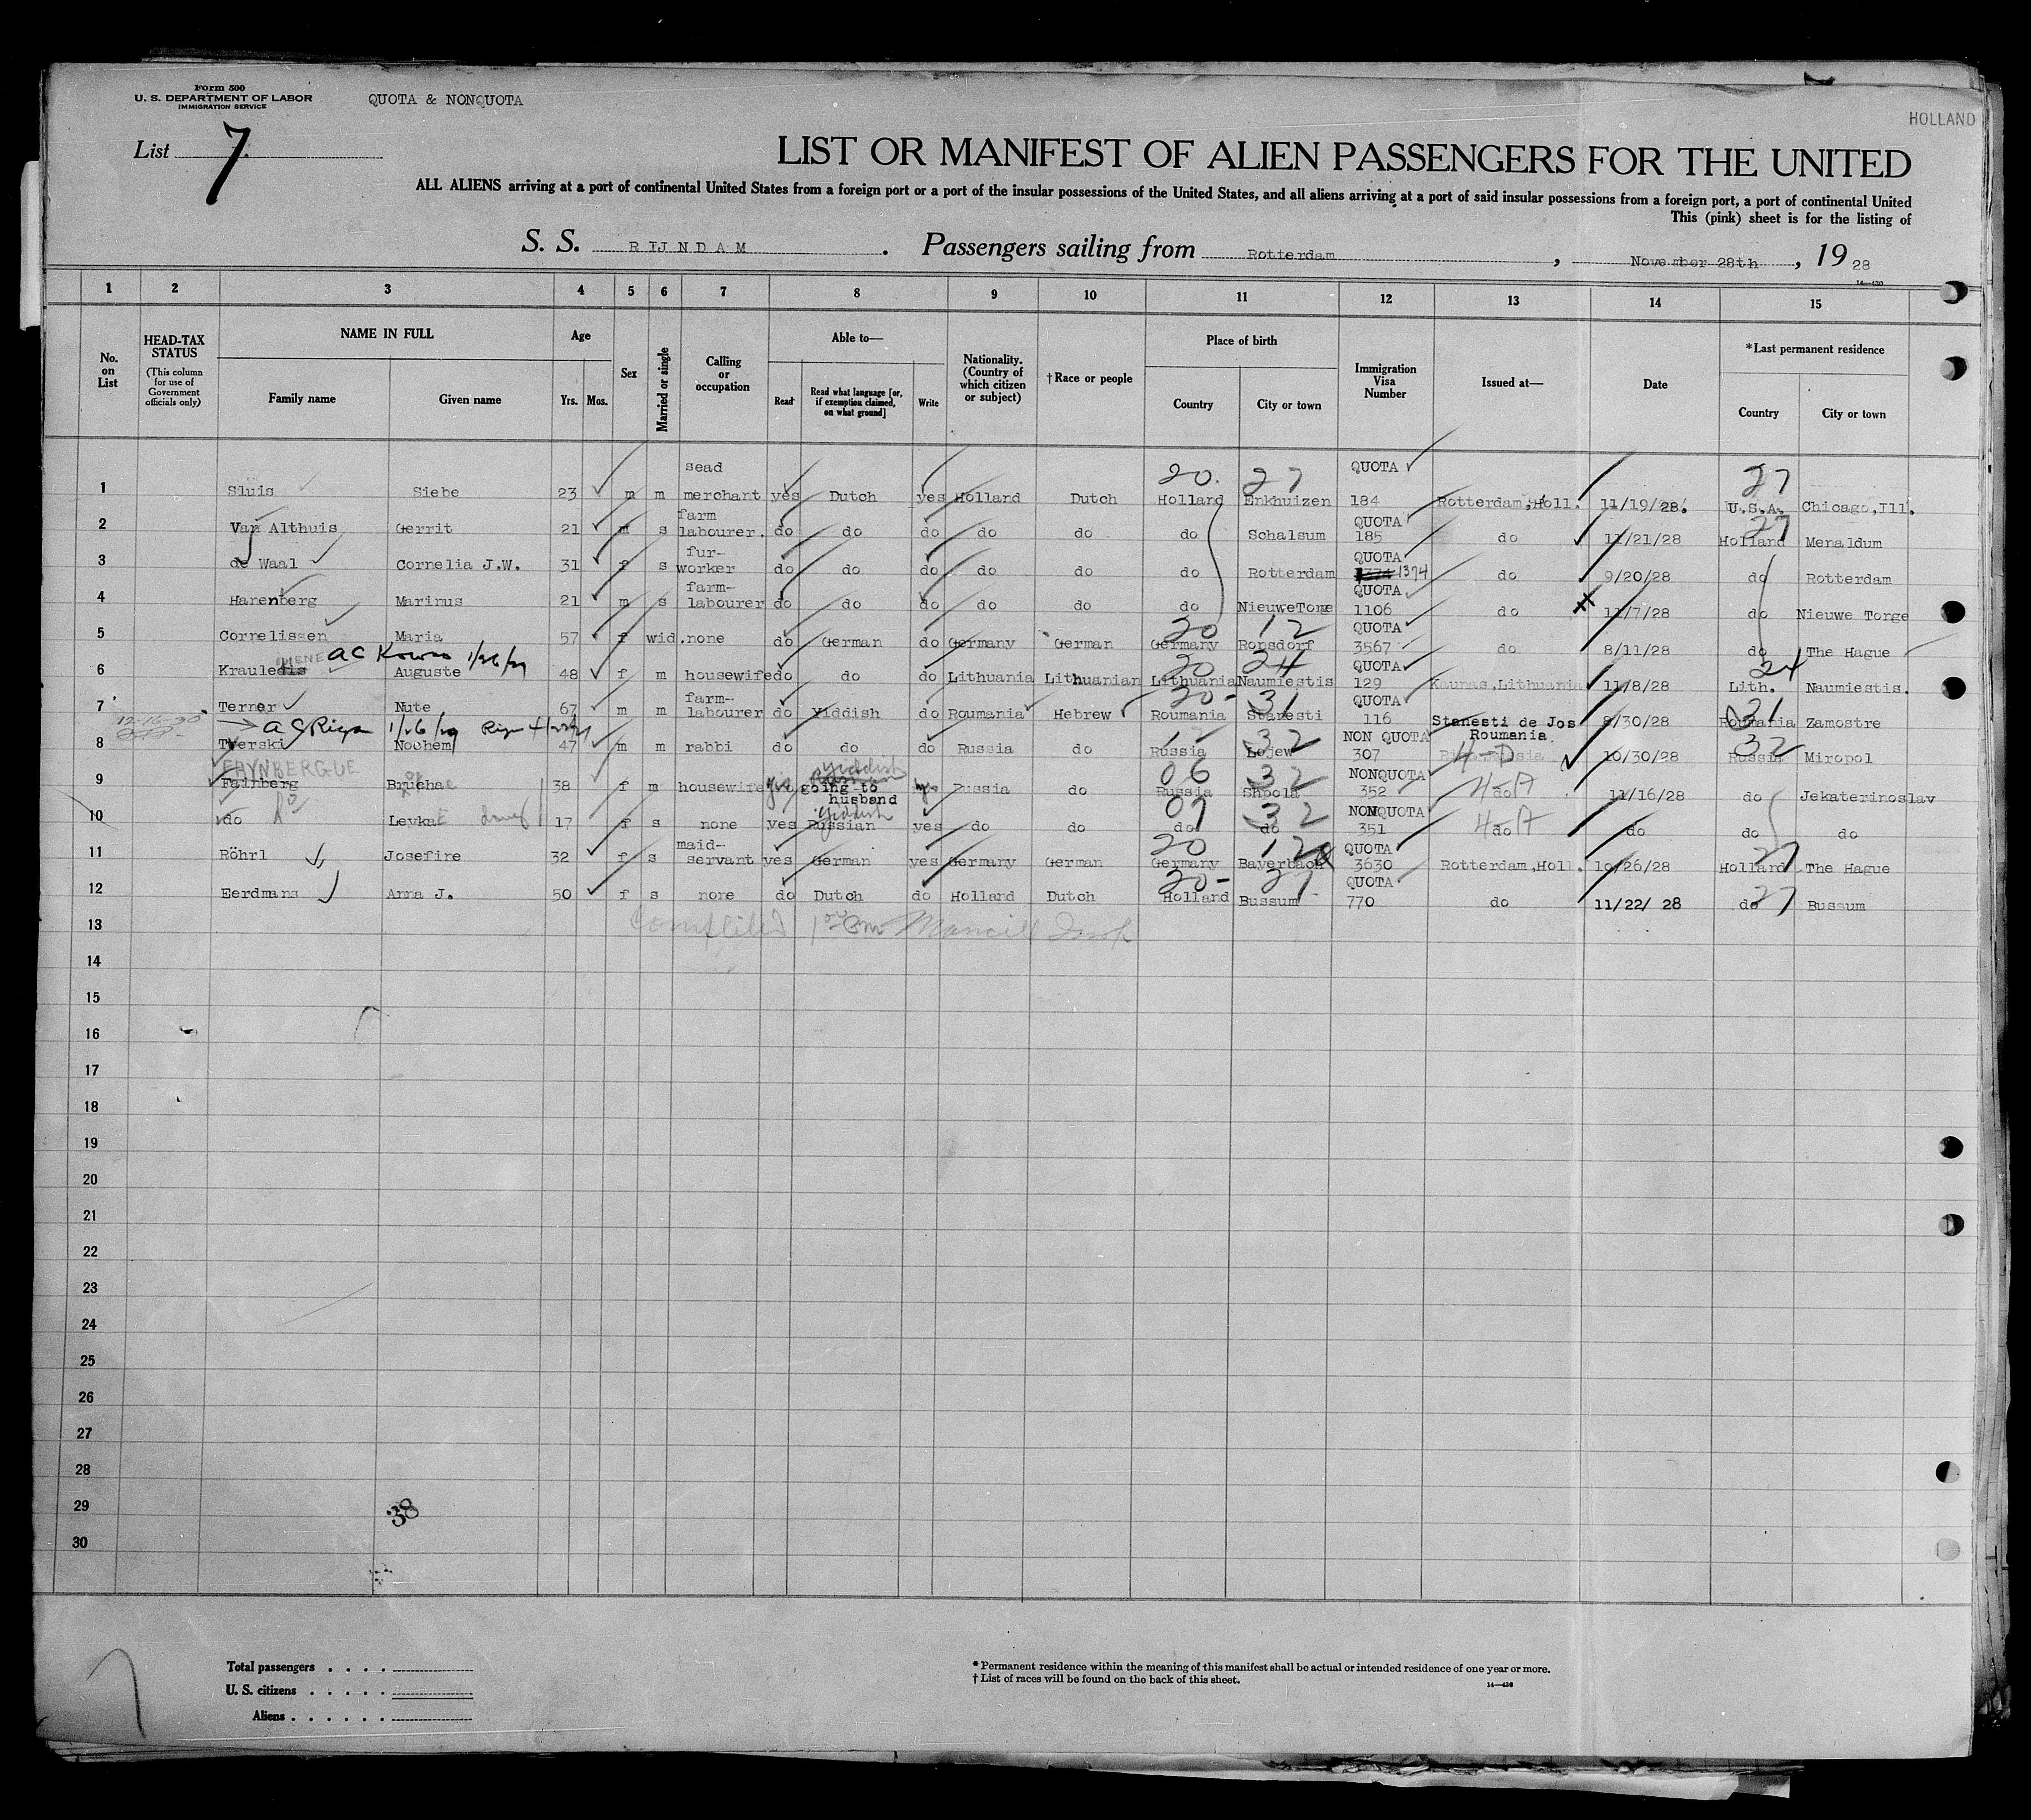 Form 500
U. S. DEPARTMENT OF LABOR
IMMIGRATION SERVICE
QUOTA & NONQUOTA
HOLLAND
List 7.
LIST OR MANIFEST OF ALIEN PASSENGERS FOR THE UNITED
ALL ALIENS arriving at a port of continental United States from a foreign port or a port of the insular possessions of the United States, and all aliens arriving at a port of said insular possessions from a foreign port, a port of continental United
This (pink) sheet is for the listing of
S. S. RIJNDAM. Passengers sailing from Rotterdam, November 28th, 1928
14—430
1 2 3 4 5 6 7 8 9 10 11 12 13 14 15
No. on List
HEAD-TAX STATUS (This column for use of Government officials only)
NAME IN FULL Family name Given name
Age Yrs. Mos.
Sex
Married or single
Calling or occupation
Able to— Read Read what language [or, if exemption claimed, on what ground] Write
Nationality. (Country of which citizen or subject)
†Race or people
Place of birth Country City or town
Immigration Visa Number
Issued at—
Date
*Last permanent residence Country City or town
sead 20. 27 QUOTA 27
1 Sluis Siebe 23 m m merchant yes Dutch yes Holland Dutch Holland Enkhuizen 184 Rotterdam,Holl. 11/19/28. U.S.A. Chicago,Ill.
farm QUOTA 27
2 Van Althuis Gerrit 21 m s labourer. do do do do do do Schalsum 185 do 11/21/28 Holland Menaldum
fur- QUOTA
3 de Waal Cornelia J.W. 31 f s worker do do do do do do Rotterdam 1374 do 9/20/28 do Rotterdam
farm- QUOTA
4 Harenberg Marinus 21 m s labourer do do do do do do NieuweTonge 1106 do 11/7/28 do Nieuwe Torge
20 12 QUOTA
5 Cornelissen Maria 57 f wid. none do German do Germany German Germany Ronsdorf 3567 do 8/11/28 do The Hague
AC Kovno 1/26/29 20 24 QUOTA 24
6 Krauledis Auguste 48 f m housewife do do do Lithuania Lithuanian Lithuania Naumiestis 129 Kaunas,Lithuania 11/8/28 Lith. Naumiestis.
farm- 20- 31 QUOTA 31
7 Terner Nute 67 m m labourer do Yiddish do Roumania Hebrew Roumania Stanesti 116 Stanesti de Jos Roumania 8/30/28 Roumania Zamostre
12-16-30
AC Riga 1/26/29 32 NON QUOTA 4-D 32
8 Twerski Nochem 47 m m rabbi do do do Russia do Russia Lojew 307 10/30/28 Russia Miropol
FAYNBERGUE Yiddish 06 32 NONQUOTA 4-A
9 Fainberg Brucha 38 f m housewife going to husband Russia do Russia Shpola 352 do 11/16/28 do Jekaterinoslav
do Yiddish 07 32 NONQUOTA 4-A
10 do Leyka 17 f s none yes Russian yes do do do do 351 do do do do
maid- 20 12 QUOTA 27
11 Röhrl Josefine 32 f s servant yes German yes Germany German Germany Bayerbach 3630 Rotterdam,Holl. 10/26/28 Holland The Hague
20- 27 QUOTA 27
12 Eerdmans Anna J. 50 f s none do Dutch do Holland Dutch Holland Bussum 770 do 11/22/28 do Bussum
13
14
15
16
17
18
19
20
21
22
23
24
25
26
27
28
29
30
38
Total passengers
U. S. citizens
Aliens
* Permanent residence within the meaning of this manifest shall be actual or intended residence of one year or more.
† List of races will be found on the back of this sheet.
14—430
7